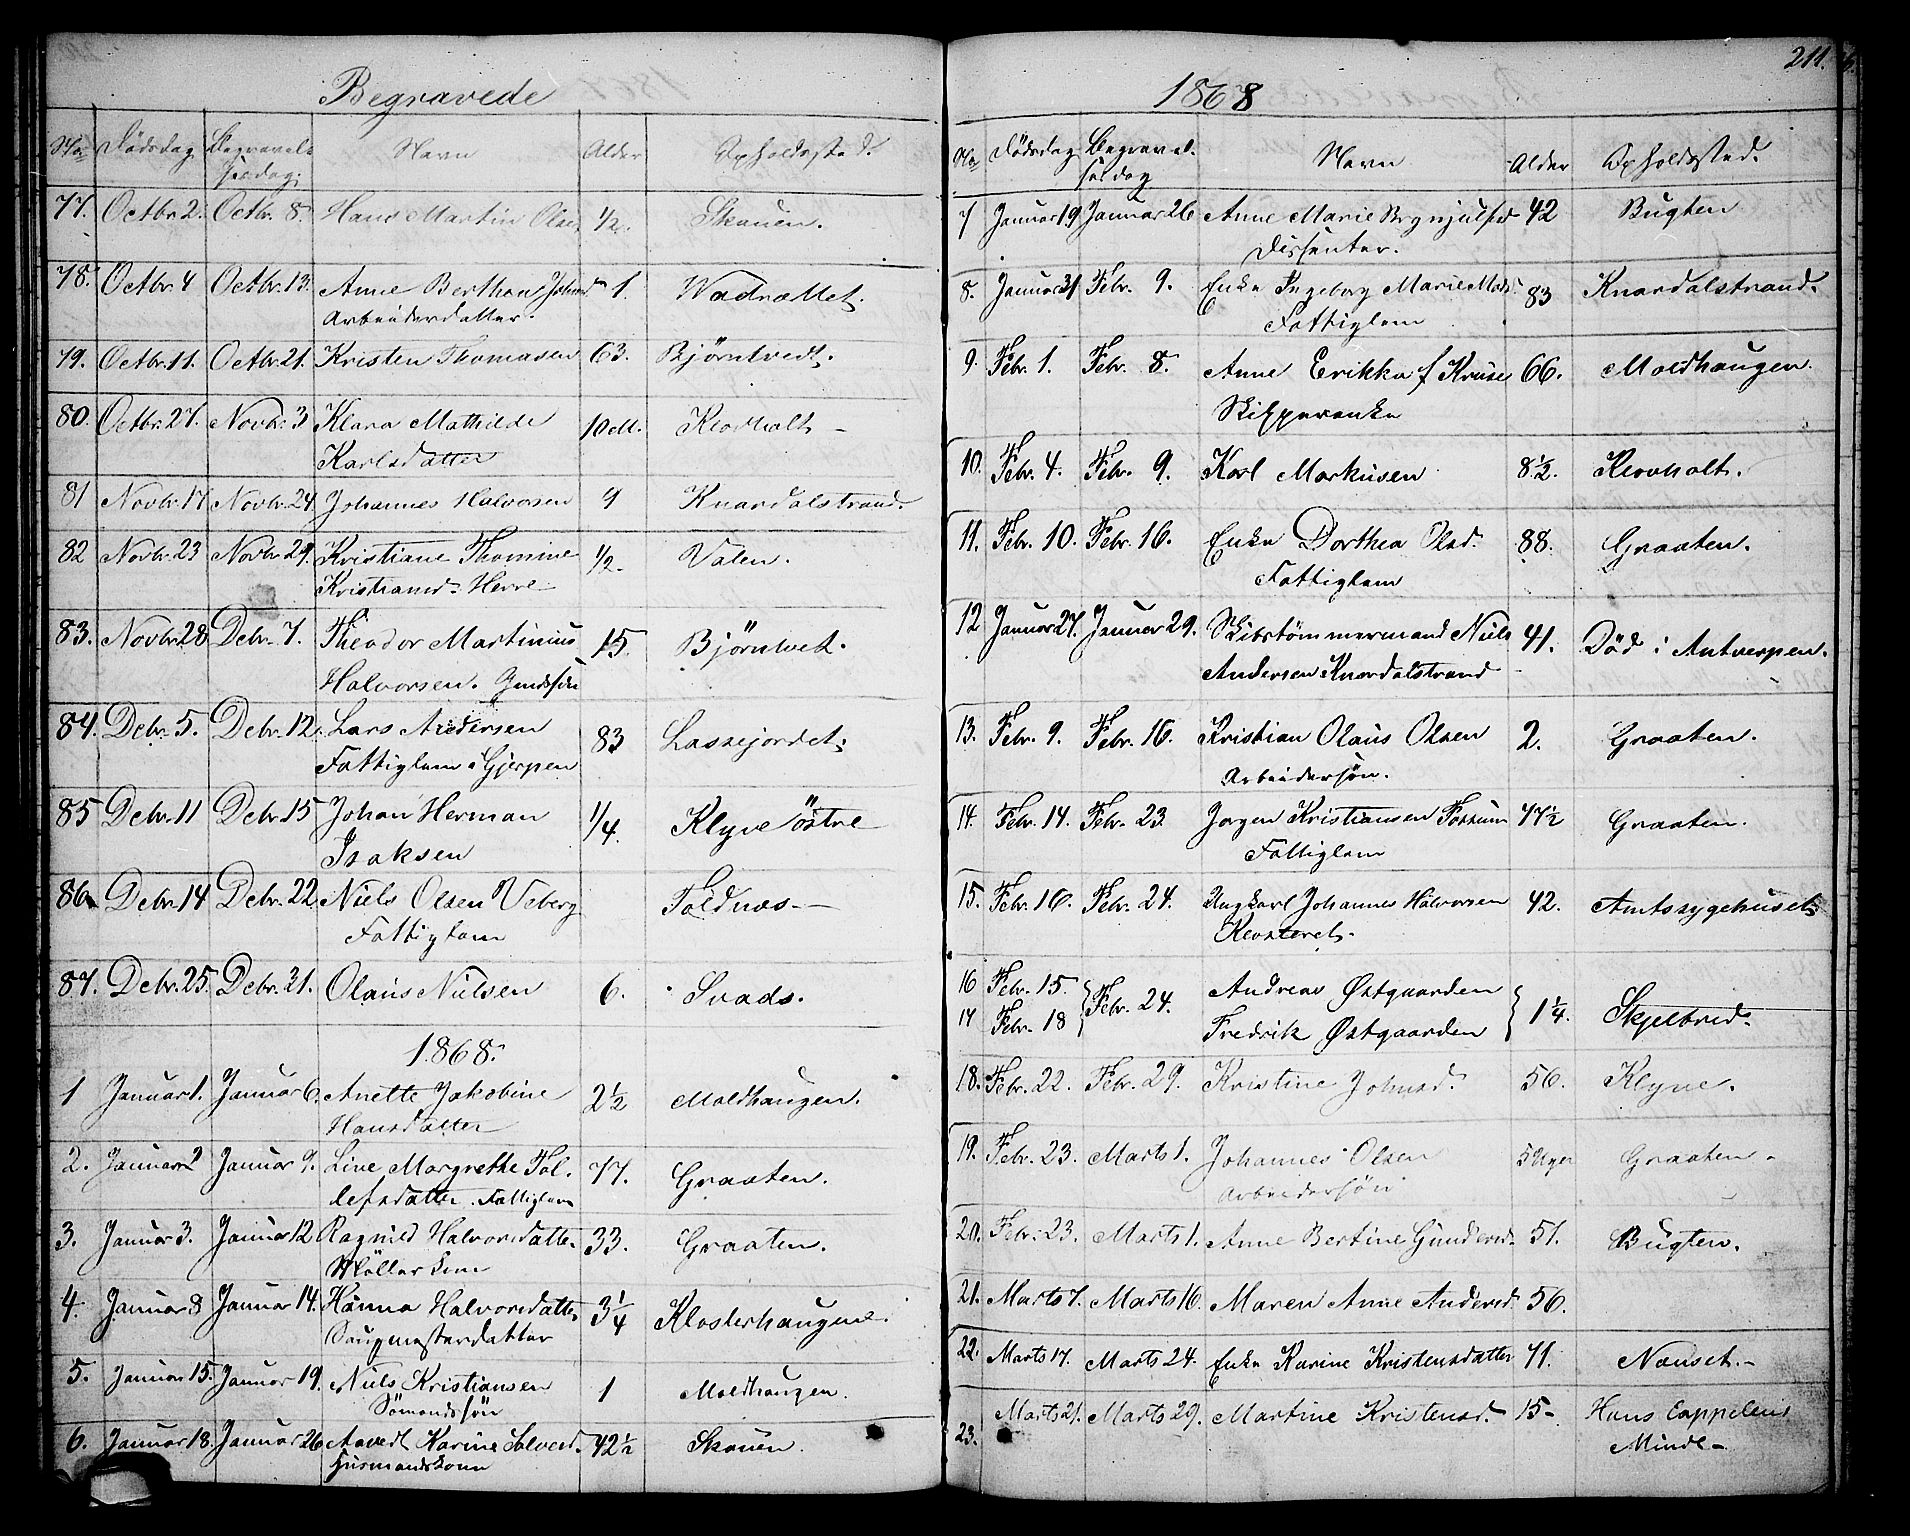 Begravede
No Dødsdag Begravelsesdag Navn Alder Opholdssted.
77. Octbr. 2. Octbr. 8. Hans Martin Olsen 1/2. Skouen.
78. Octbr. 4 Octbr. 13. Anne Berthe Johns 1. Wadrættet.
Arbeiderdatter.
79. Octbr. 11. Octbr. 21. Kristen Thomasen 63. Bjørntvedt.
80. Octbr. 27. Novbr. 3 Klara Mathilde 10 M. Klovholt –
Karlsdatter
81 Novbr. 17 Novbr. 24. Johannes Halvorsen 9 Knardalstrand.
82 Novbr. 23 Novbr. 29. Kristiane Thomine 1/2. Valen.
Kristiansd. Herre
83. Novbr. 28 Debr. 7. Theodor Martinius 15. Bjørntvet.
Halvorsen.
84. Debr. 5. Debr. 12. Lars Andersen 83 Lassejordet.
Fattiglem i Gjerpen
85 Debr. 11 Debr. 15 Johan Herman 1/4. Klyve østre
Isaksen
86. Debr. 14 Debr. 22. Niels Olsen Ueberg Foldnæs –
Fattiglem
87. Debr. 25. Debr. 31. Olaus Nielsen 6. Svads.
1868.
1 Januar 1. Januar 6. Anette Jakobine 2 1/2 Moldhaugen.
Hansdatter
2. Januar 2 Januar 9. Line Margrethe Tol- 77. Graaten.
lefsdatter. Fattiglem
3. Januar 3. Januar 12 Ragnild Halvorsdatter 33. Graaten.
Møllerkone
4. Januar 8 Januar 14. Hanna Halvorsdatter 3 1/4 Klosterhaugene.
Saugmesterdatter
5. Januar 15. Januar 19. Niels Kristiansen 1 Moldhaugen.
Sömandssön
6. Januar 18. Januar 26 Karine Solversd. 42 1/2 Skouen.
Husmandskone
1868
211.
No Dødsdag Begravelsesdag Navn Alder Opholdssted.
7 Januar 19 Januar 26 Anne Marie Brynjulfsd 42 Bugten
Dissenter.
8. Januar 31 Febr. 9. Enke Ingeborg Marie Mads. 83 Knardalstrand.
Fattiglem
9. Febr. 1. Febr. 8. Anne Erikka f Kruse 66. Moldhaugen.
Skipperenke
10. Febr. 4. Febr. 9. Karl Markusen 8 1/2. Klovholt.
11. Febr. 10. Febr. 16. Enke Dorthea Olsd. 88. Graaten.
Fattiglem
12 Januar 27. Januar 29. Skibstømmermand Niels 41. Død i Antverpen.
Andersen Knardalstrand
13. Febr. 9. Febr. 16. Kristian Olaus Olsen 2. Graaten.
Arbeidersön.
14. Febr. 14. Febr. 23 Jørgen Kristiansen Fossum 47 1/2 Graaten.
Fattiglem
15. Febr. 16. Febr. 24. Ungkarl Johannes Halvorsen 42. Amtssygehuset
Klosteret.
16 Febr. 15. Febr. 24. Andreas Østgaarden 1 1/4. Skjelbred.
17 Febr. 18 Fredrik Østgaarden
18. Febr. 22. Febr. 29. Kristine Johnsd. 56. Klyve.
19. Febr. 23. Marts 1. Johannes Olsen 5 Uger Graaten.
Arbeidersön
20. Febr. 23. Marts 1. Anne Bertine Gundersd. 51. Bugten.
21. Marts 7. Marts 16. Maren Anne Andersd. 56.
22. Marts 17. Marts 24. Enke Karine Kristensdatter 71. Nænset. –
23. Marts 21. Marts 29. Martine Kristensd. 15 – Hans Cappelens
Minde –